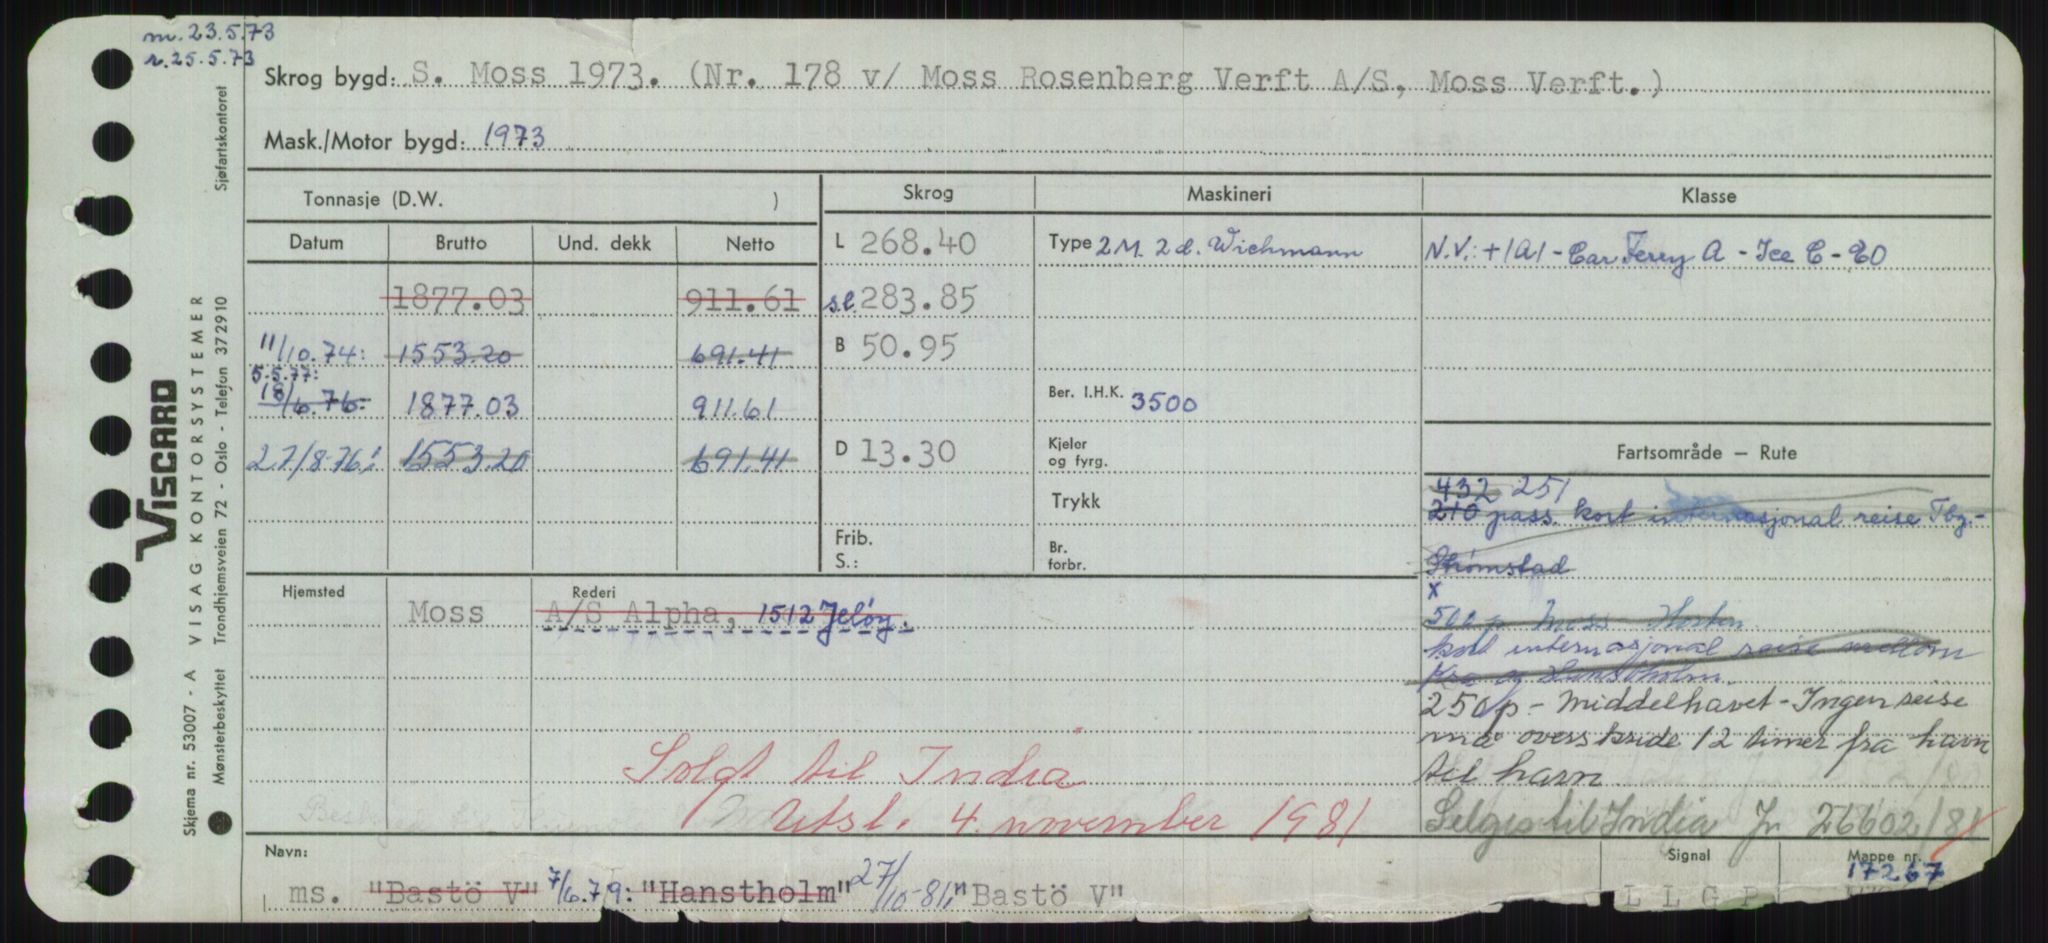 m. 23.5.73
r. 25.5.73
Skrog bygd: S. Moss 1973. (Nr. 178 v/ Moss Rosenberg Verft A/S, Moss Verft.)
Mask./Motor bygd: 1973
Tonnasje (D.W. ) Skrog Maskineri Klasse
Datum Brutto Und. dekk Netto L 268.40 Type 2 M. 2 d. Wichmann N.V.: +1A1 - Car Ferry A - Ice C - EO
1877.03 911.61 s.l. 283.85
11/10.74: 1553.20 691.41 B 50.95
5.5.77:
18/6.76: 1877.03 911.61 Ber. I.H.K. 3500
27/8-76: 1553.20 691.41 D 13.30 Kjeler og fyrg. Fartsområde — Rute
Trykk 432 251
210 pass. kort internasjonal reise Tbg.-
Frib. S.: Br. forbr. Strömstad
x
Hjemsted Moss Rederi A/S Alpha, 1512 Jeløy. 500 p Moss - Horten
kort internasjonal reise mellom
Kra og Hanstholm.
250 p - Middelhavet - Ingen reise
må overskride 12 timer fra havn
Solgt til India til havn
Utsl. 4. november 1981 Selges til India Jr 26602/81
Navn: Signal Mappe nr.
17267
ms. "Bastö V" 7/6.79: "Hanstholm" 27/10-81: "Bastö V" L L G P
Sjøfartskontoret
VISCARD
VISAG KONTORSYSTEMER
Trondhjemsveien 72 - Oslo - Telefon 372910
Skjema nr. 53007 - A
Mønsterbeskyttet